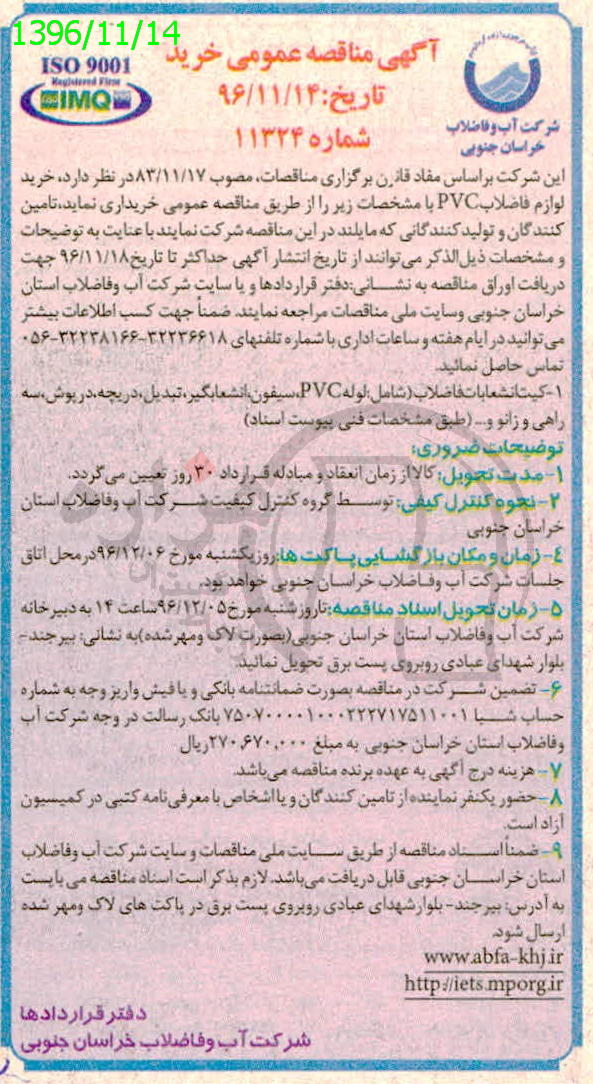 1396/11/14
ISO 9001
Registered Firm
IMQ
آگهی مناقصه عمومی خرید
تاریخ:۹۶/۱۱/۱۴
شماره ۱۱۳۲۴
شرکت آب وفاضلاب
خراسان جنوبی
این شرکت براساس مفاد قانون برگزاری مناقصات، مصوب ۸۳/۱۱/۱۷در نظر دارد، خرید
لوازم فاضلابPVC با مشخصات زیر را از طریق مناقصه عمومی خریداری نماید،تامین
کنندگان و تولیدکنندگانی که مایلند در این مناقصه شرکت نمایند با عنایت به توضیحات
و مشخصات ذیل‌الذکر می‌توانند از تاریخ انتشار آگهی حداکثر تا تاریخ۹۶/۱۱/۱۸ جهت
دریافت اوراق مناقصه به نشـــانی:دفتر قراردادها و یا سایت شرکت آب وفاضلاب استان
خراسان جنوبی وسایت ملی مناقصات مراجعه نمایند. ضمناً جهت کسب اطلاعات بیشتر
می‌توانید در ایام هفته و ساعات اداری با شماره تلفنهای ۳۲۲۳۶۶۱۸-۳۲۲۳۸۱۶۶-۰۵۶
تماس حاصل نمائید.
۱-کیت‌انشعابات‌فاضلاب(شامل:لولهPVC،سیفون،انشعابگیر،تبدیل،دریچه،درپوش،سه
راهی و زانو و... (طبق مشخصات فنی پیوست اسناد)
توضیحات ضروری:
۱-مدت تحویل: کالا از زمان انعقاد و مبادله قـرارداد ۳۰ روز تعیین می‌گردد.
۲-نحوه کنترل کیفی: توســط گروه کنترل کیفیت شــرکت آب وفاضلاب استان
خراسان جنوبی
٤-زمان و مکان بازگشایی پاکت ها:روزیکشنبه مورخ ۹۶/۱۲/۰۶درمحل اتاق
جلسات شرکت آب وفـاضلاب خراسـان جنوبی خواهد بود.
۵-زمان تحویل اسناد مناقصه:تاروز شنبه مورخ۹۶/۱۲/۰۵ساعت ۱۴ به دبیرخانه
شرکت آب وفاضلاب استان خراسان جنوبی(بصورت لاک ومهر شده)به نشانی: بیرجند-
بلوار شهدای عبادی روبروی پست برق تحویل نمائید.
۶- تضمین شـــرکت در مناقصه بصورت ضمانتنامه بانکی و یا فیش واریز وجه به شماره
حساب شـــبا ۷۵۰۷۰۰۰۰۱۰۰۰۲۲۲۷۱۷۵۱۱۰۰۱ بانک رسالت در وجه شرکت آب
وفاضلاب استان خراسان جنوبی به مبلغ ۲۷۰,۶۷۰,۰۰۰ریال
۷- هزینه درج آگهی به عهده برنده مناقصه می‌باشد.
۸-حضور یکنفر نماینده از تامین کنندگان و یا اشخاص با معرفی‌نامه کتبی در کمیسیون
آزاد است.
۹- ضمناً اســـناد مناقصه از طریق ســـایت ملی مناقصات و سایت شرکت آب وفاضلاب
استان خراســـان جنوبی قابل دریافت می‌باشد. لازم بذکر است اسناد مناقصه می بایست
به آدرس: بیرجند- بلوارشهدای عبادی روبروی پست برق در پاکت های لاک ومهر شده
ارسال شود.
www.abfa-khj.ir
http://iets.mporg.ir
دفتر قراردادها
شرکت آب وفاضلاب خراسان جنوبی